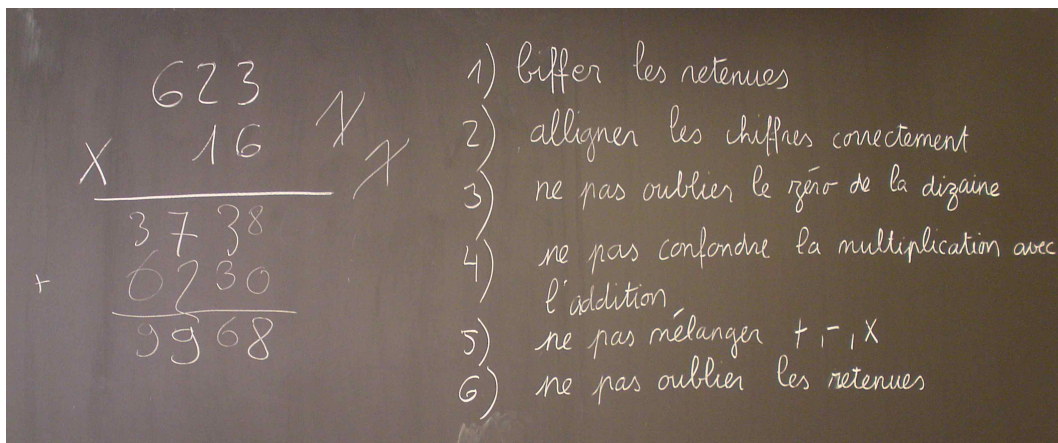 623
X 16
3738
+ 6230
9968
1) biffer les retenues
2) alligner les chiffres correctement
3) ne pas oublier le zéro de la dizaine
4) ne pas confondre la multiplication avec
l'addition
5) ne pas mélanger +, -, X
6) ne pas oublier les retenues